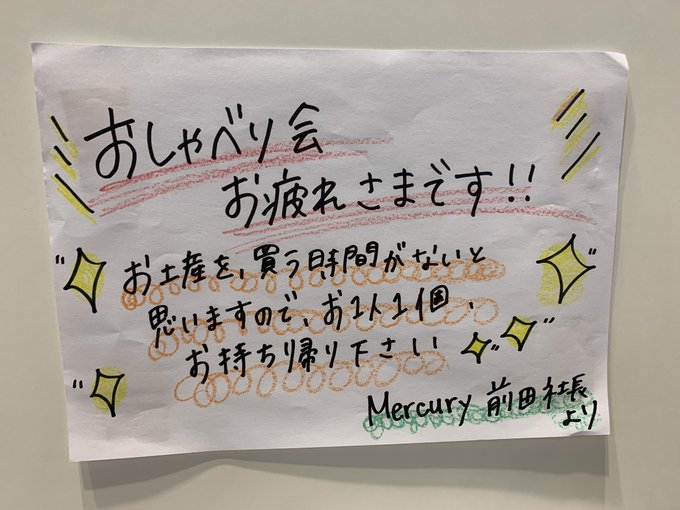 おしゃべり会
お疲れさまです!!
お土産を、買う時間がないと
思いますので、お1人1個、
お持ち帰り下さい
Mercury 前田社長
より